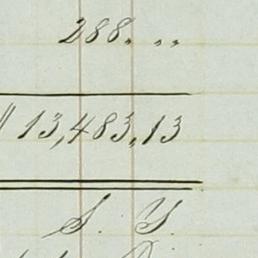 288. „
13,483.13
S. Y.